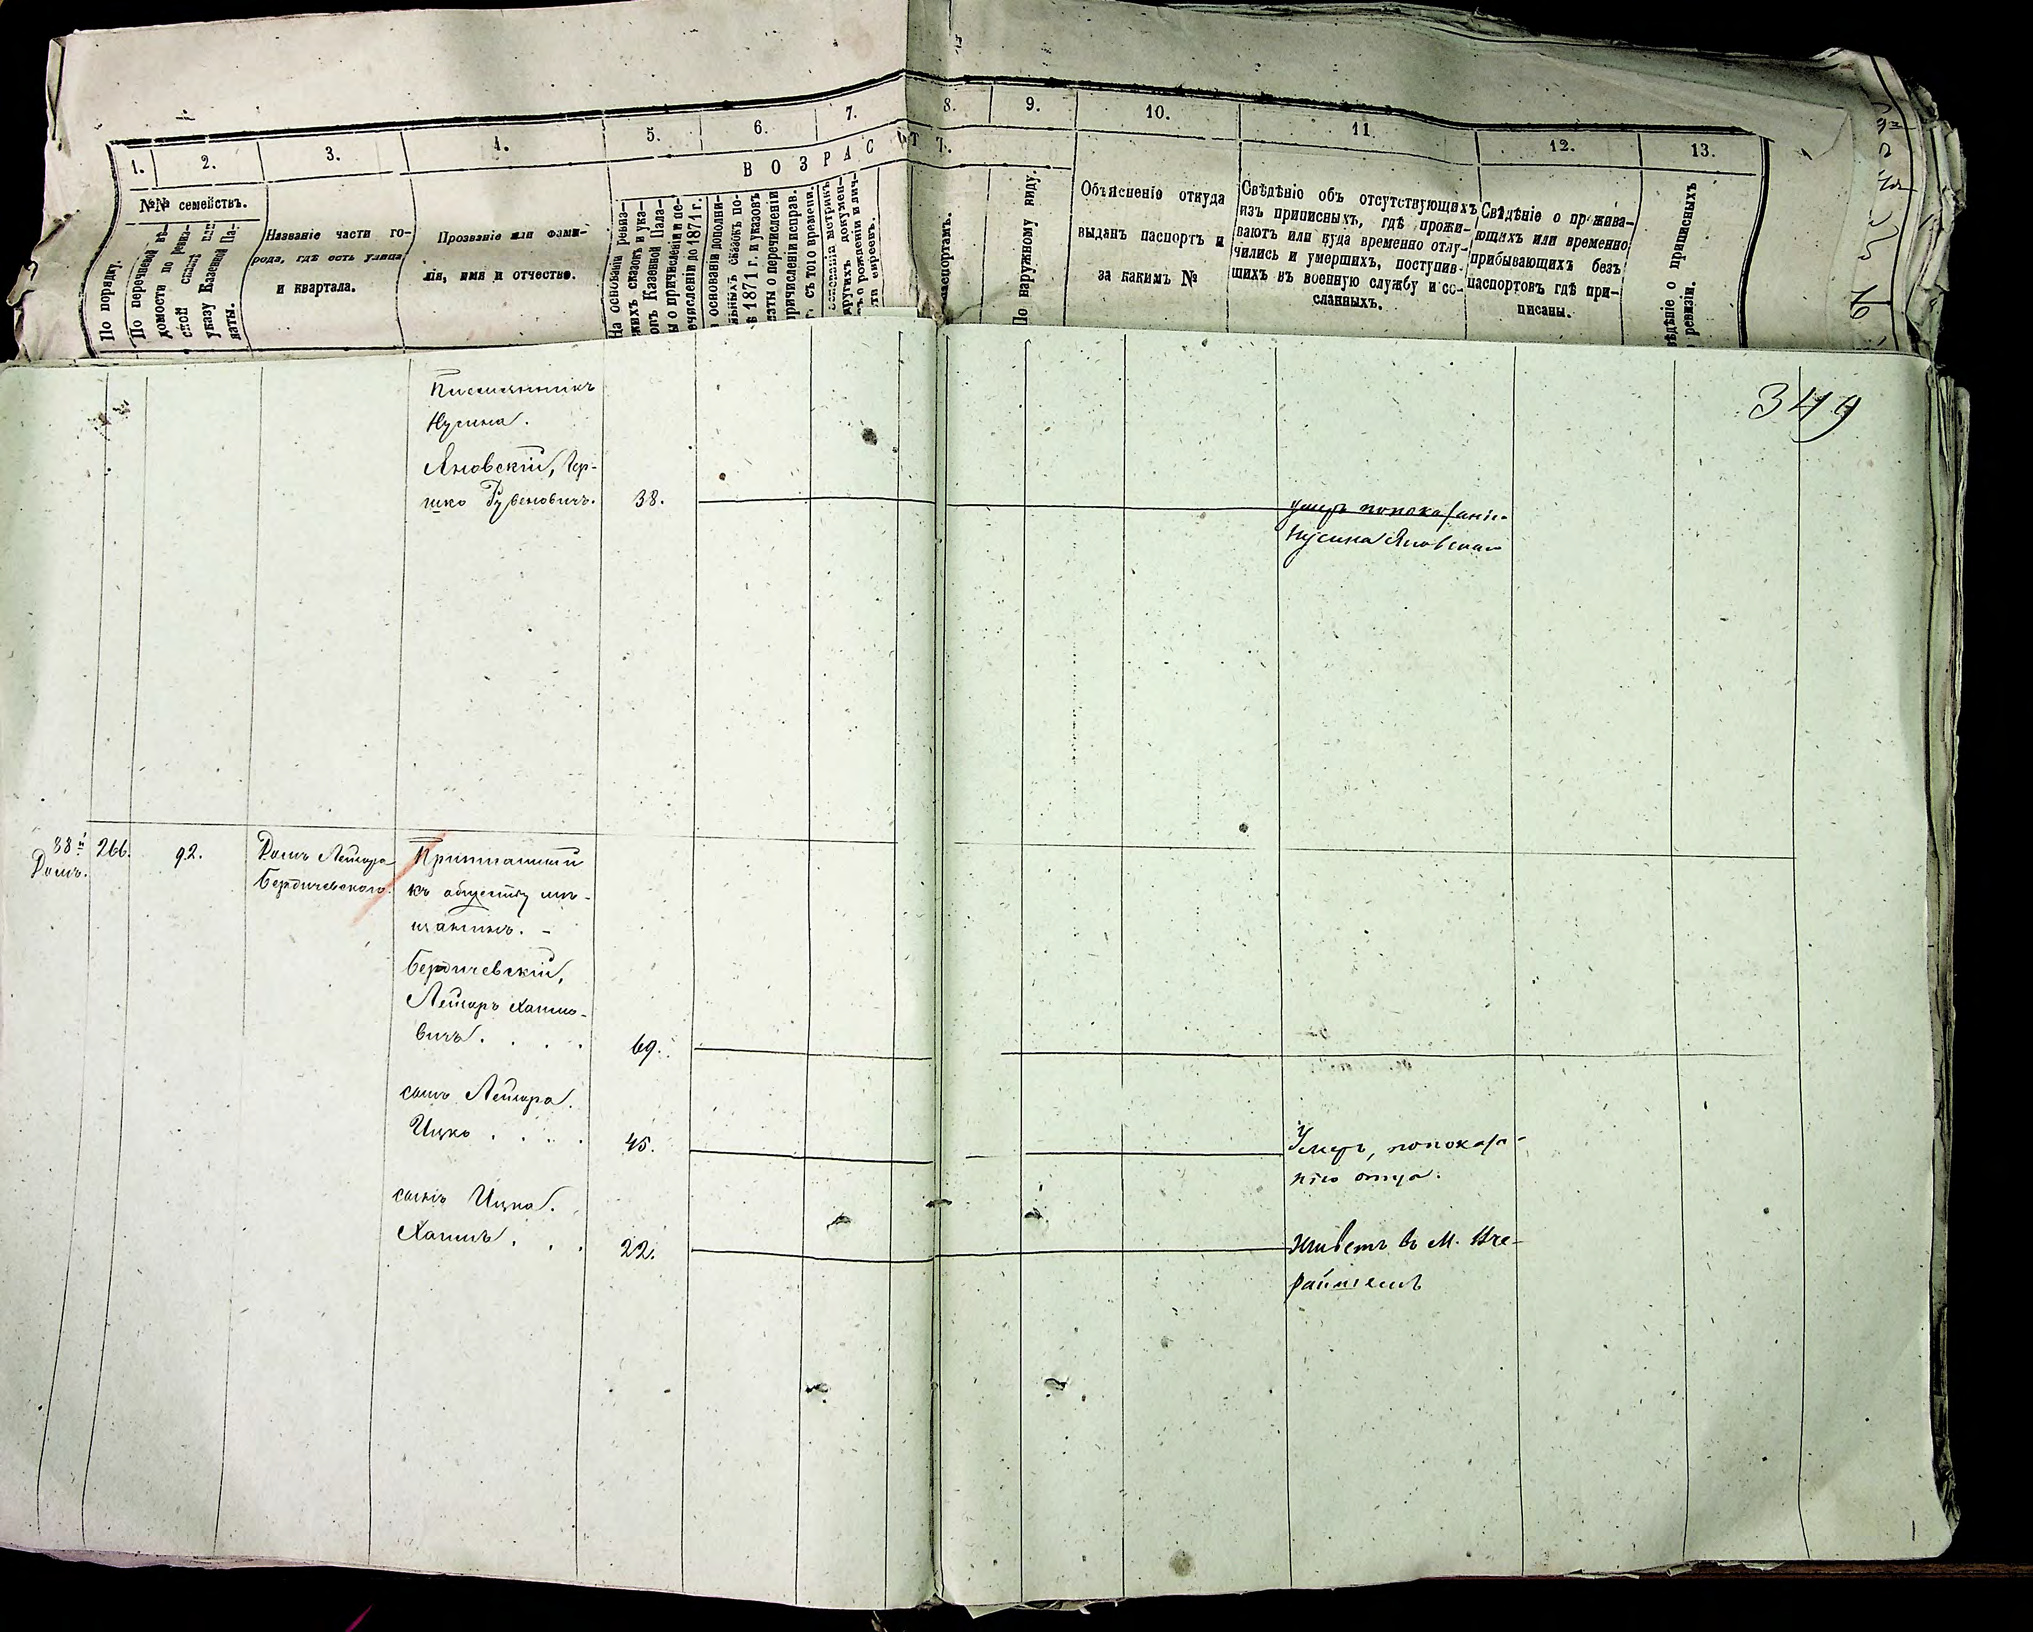 1.
2.
3.
4.
5.
6.
7.
8.
9.
10.
11.
12.
13.
ВОЗРАСТЪ.
№№ семействъ.
По порядку.
По перечневой вѣ-
домости по ревиз-
ской сказкѣ или
указу Казенной Па-
латы.
Названіе части го-
рода, гдѣ есть улица
и квартала.
Прозваніе или фами-
лія, имя и отчество.
На основаніи ревиз-
скихъ сказокъ и ука-
зовъ Казенной Пала-
ты о причисленіи и пе-
речисленіи до 1871 г.
основаніи дополни-
льныхъ сказокъ по-
1871 г. и указовъ
латы о перечисленіи
причисленіи исправ.
съ того времени.
основаніи метрикъ
другихъ докумен-
о рожденіи и лич-
сти евреевъ.
паспортамъ.
По наружному виду.
Объясненіе откуда
выданъ паспортъ и
за какимъ №
Свѣдѣніе объ отсутствующихъ
изъ приписныхъ, гдѣ прожи-
ваютъ или куда временно отлу-
чились и умершихъ, поступив-
шихъ въ военную службу и со-
сланныхъ.
Свѣдѣніе о прожива-
ющихъ или временно
прибывающихъ безъ
паспортовъ гдѣ при-
писаны.
вѣдѣніе о приписныхъ
ревизіи.
349
Племянникъ
Нусина.
Яновскій, Гер-
шко Рувеновичъ. 38. умеръ по показанію
Нусина Яновскаго
38й 266. 92. Домъ Лейзора Приписанный
Домъ. Бердичевскаго. къ обществу мѣ-
щанинъ. -
Бердичевскій,
Лейзоръ Хаимо-
вичъ . . . . 69.
сынъ Лейзора.
Ицко . . . . 45. Умеръ, по показа-
нію отца.
сынъ Ицка.
Хаимъ . . . 22. живетъ въ М. Вче-
райшемъ